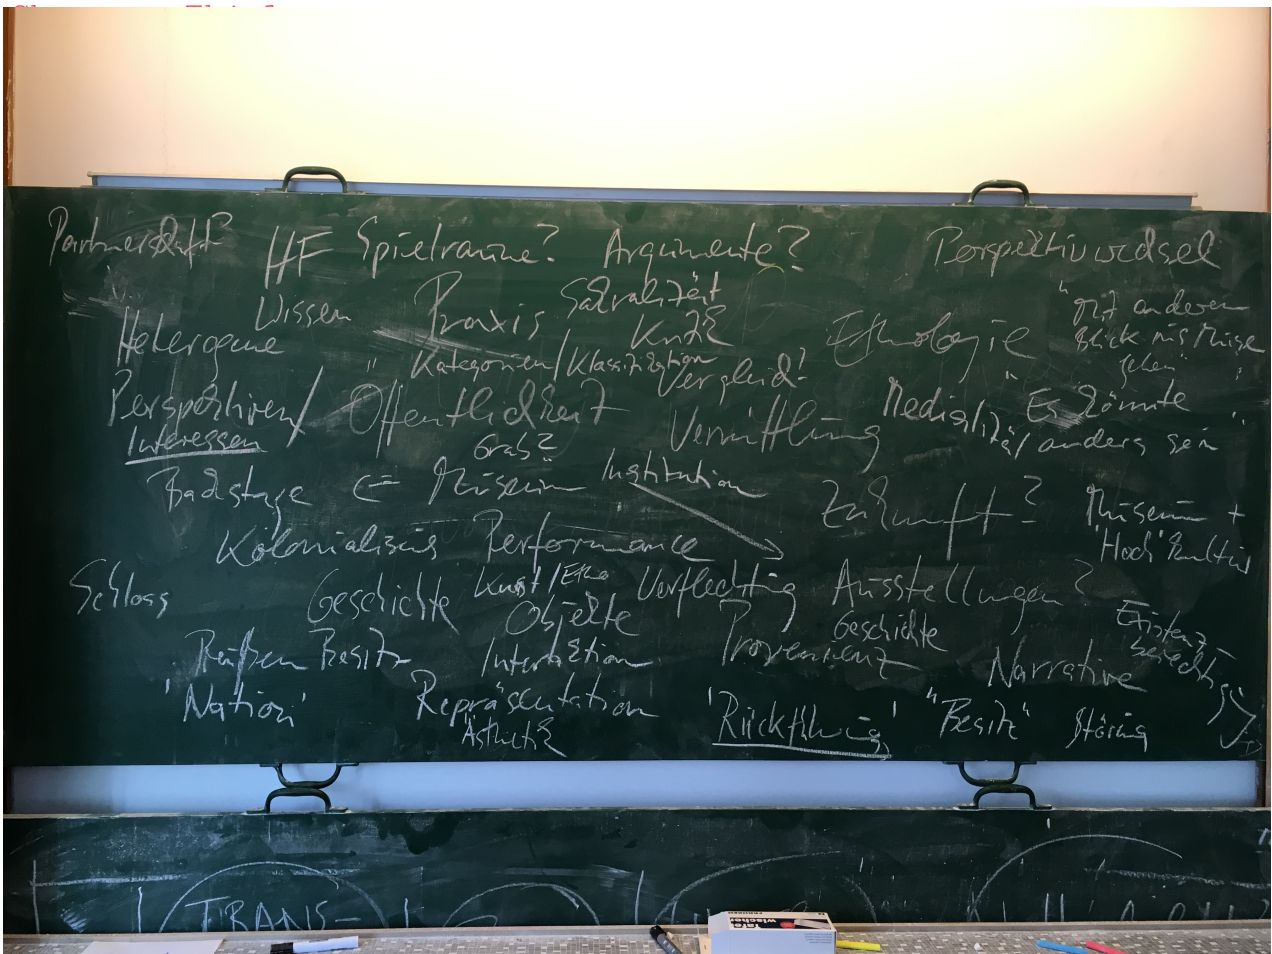 Partnerschaft? HF Spielräume? Argumente? Perspektivwechsel
Wissen Praxis Sakralität
Kritik
"Mit anderem
Blick ins Museum
gehen"
Heterogene
Perspektiven/
Interessen
Kategorien/Klassifikation
Ethnologie
Vergleich?
Öffentlichkeit Vermittlung Medialität
"Es könnte
anders sein"
Grab?
Backstage Museum Institution Zukunft?
Museum +
'Hoch'kultur
Kolonialismus Performance
Schloss Geschichte Kunst/Ethno Verflechtung Ausstellungen?
Objekte Geschichte
Preußen Besitz Interaktion Provenienz Narrative
Existenz-
berechtigung
'Nation' Repräsentation 'Rückführung' "Besitz" Störung
Ästhetik
TRANS-
wischer